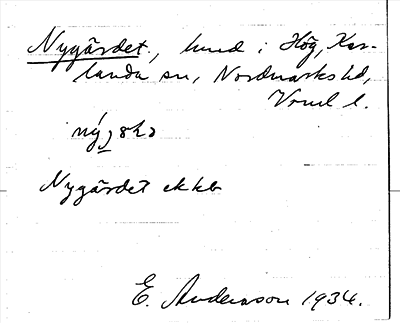 Nygärdet, hmd i Hög, Kar-
landa sn, Nordmarks hd,
Vrml l.
Nygärdet ek kb
E. Andersson 1934.